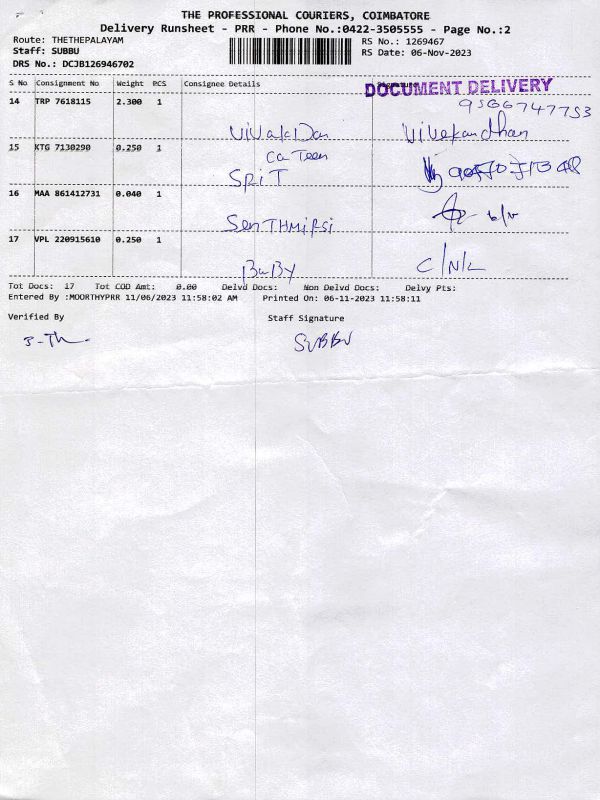 THE PROFESSIONAL COURIERS, COIMBATORE
Delivery Runsheet - PRR - Phone No.:0422-3505555 - Page No.:2
Route: THETHEPALAYAM RS No.: 1269467
Staff: SUBBU RS Date: 06-Nov-2023
DRS No.: DCJB126946702
S No Consignment No Weight PCS Consignee Details
DOCUMENT DELIVERY
14 TRP 7618115 2.300 1
9566747753
VivakDan Vivekandhan
15 KTG 7130290 0.250 1
Ca Teen
SPiT
16 MAA 861412731 0.040 1
SenTHMiRSi
17 VPL 220915610 0.250 1
BaBy C/N/L
Tot Docs: 17 Tot COD Amt: 0.00 Delvd Docs: Non Delvd Docs: Delvy Pts:
Entered By :MOORTHYPRR 11/06/2023 11:58:02 AM Printed On: 06-11-2023 11:58:11
Verified By Staff Signature
SUBBU